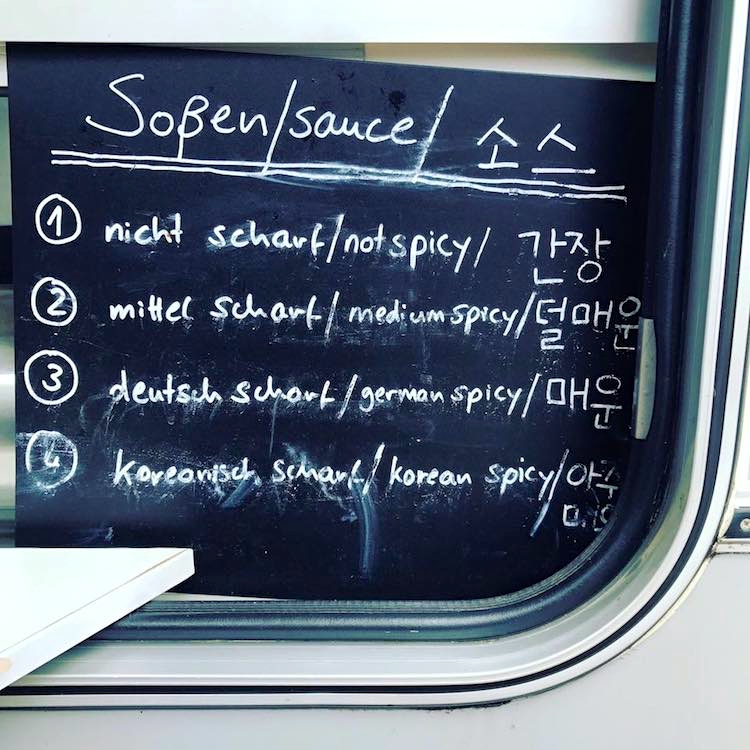 Soßen/sauce/ 소스
① nicht scharf/not spicy/ 간장
② mittel scharf/medium spicy/덜매운
③ deutsch scharf/german spicy/매운
④ koreanisch scharf/korean spicy/아주